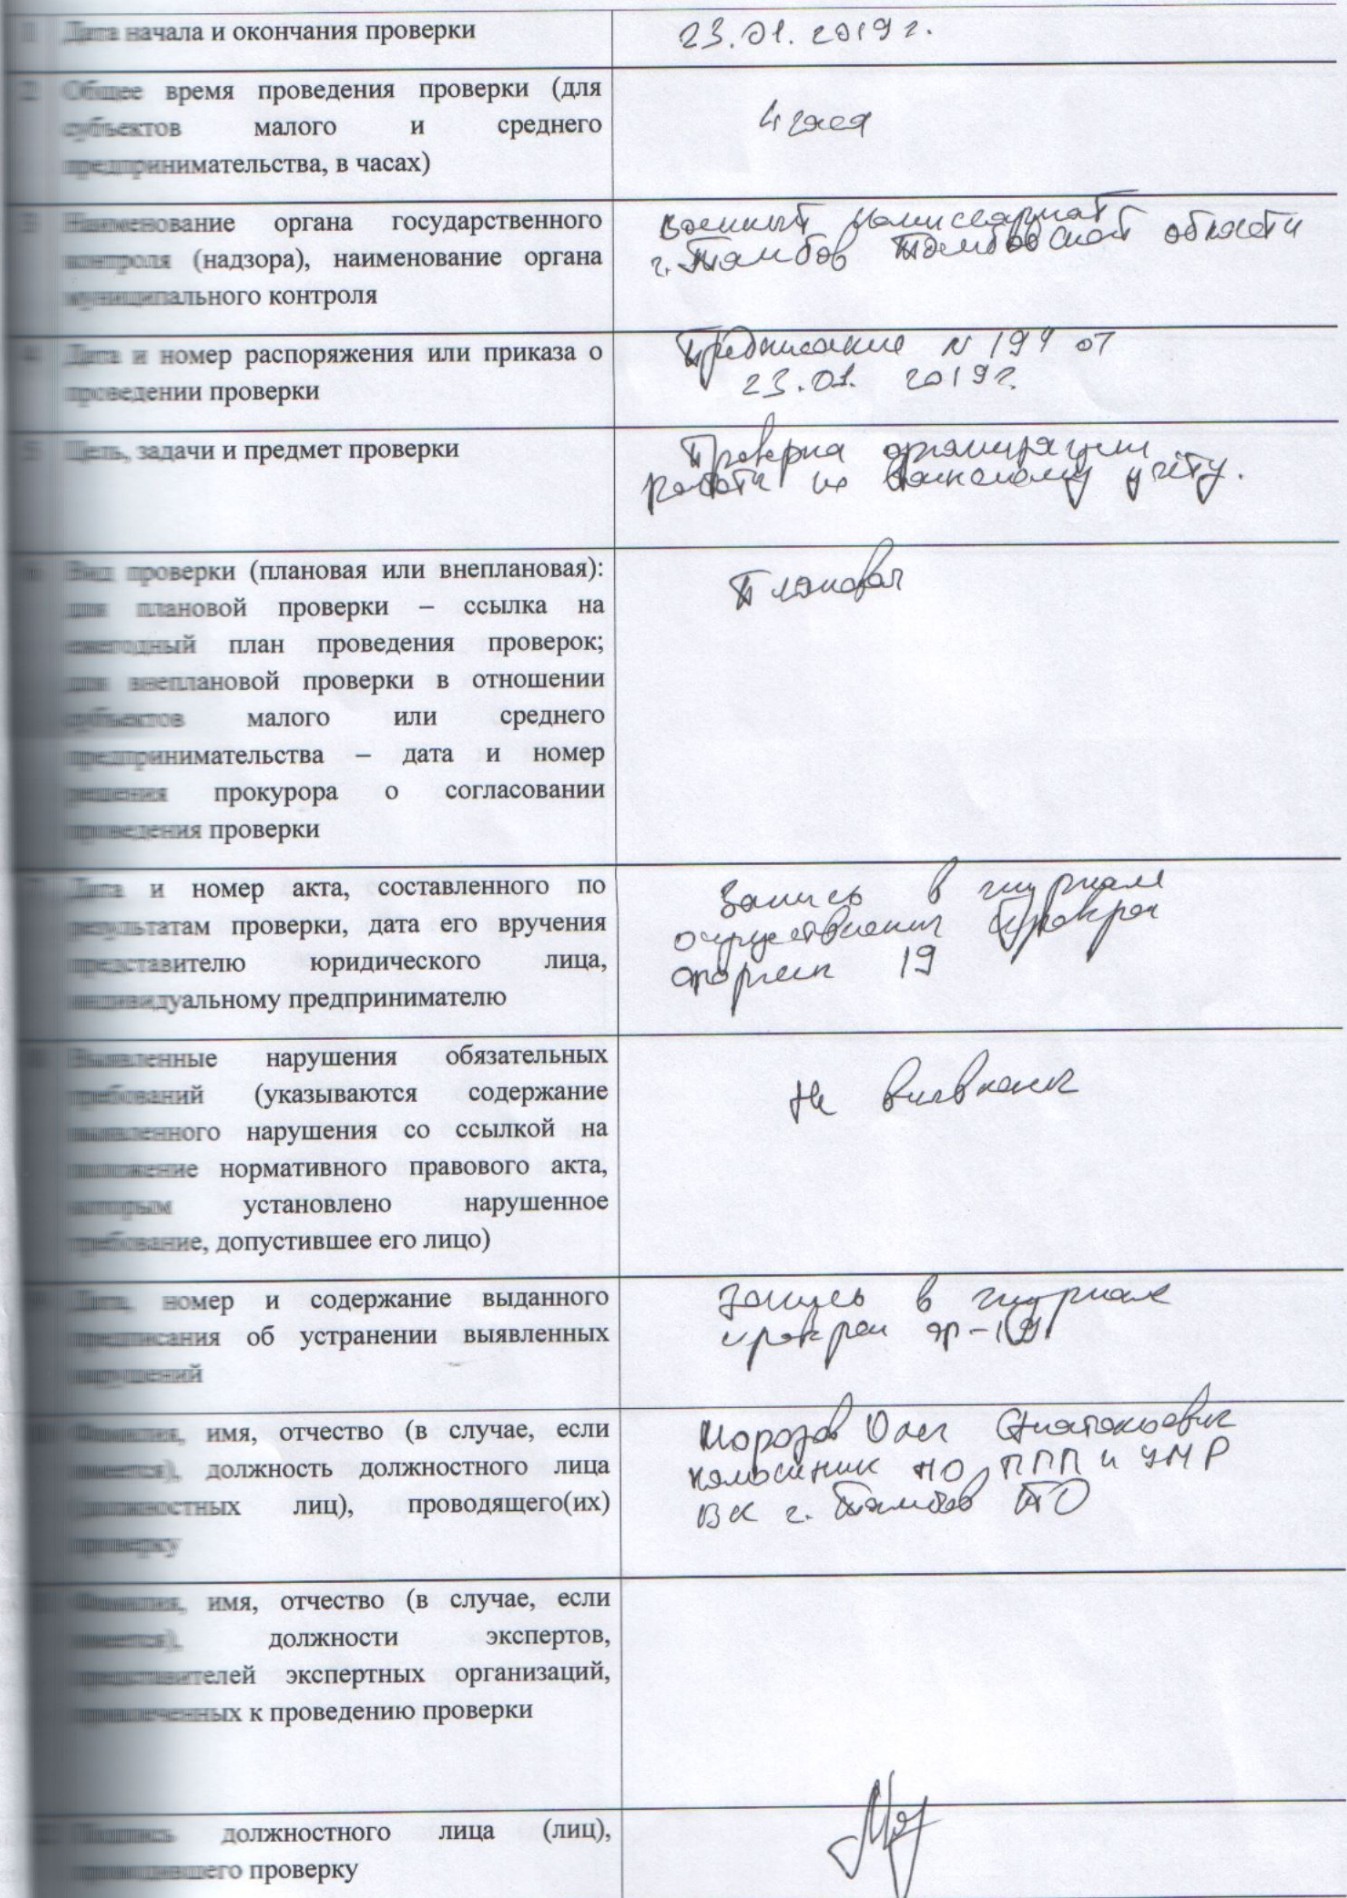 1 Дата начала и окончания проверки
23.01.2019 г.
2 Общее время проведения проверки (для
субъектов малого и среднего
предпринимательства, в часах)
4 часа
3 Наименование органа государственного
контроля (надзора), наименование органа
муниципального контроля
Военный комиссариат
г. Тамбов Тамбовской области
4 Дата и номер распоряжения или приказа о
проведении проверки
Предписание N 194 от
23.01. 2019г.
5 Цель, задачи и предмет проверки
Проверка организации
работы по воинскому учёту.
6 Вид проверки (плановая или внеплановая):
для плановой проверки – ссылка на
ежегодный план проведения проверок;
для внеплановой проверки в отношении
субъектов малого или среднего
предпринимательства – дата и номер
решения прокурора о согласовании
проведения проверки
Плановая
7 Дата и номер акта, составленного по
результатам проверки, дата его вручения
представителю юридического лица,
индивидуальному предпринимателю
Запись в журнале
осуществления проверок
форма 19
8 Выявленные нарушения обязательных
требований (указываются содержание
выявленного нарушения со ссылкой на
положение нормативного правового акта,
которым установлено нарушенное
требование, допустившее его лицо)
Не выявлены
9 Дата, номер и содержание выданного
предписания об устранении выявленных
нарушений
Запись в журнале
проверок ф-19
Фамилия, имя, отчество (в случае, если
имеется), должность должностного лица
(должностных лиц), проводящего(их)
проверку
Морозов Олег Анатольевич
НО ППП и УМР
ВК г. Тамбов ТО
Фамилия, имя, отчество (в случае, если
имеется), должности экспертов,
представителей экспертных организаций,
привлеченных к проведению проверки
Подпись должностного лица (лиц),
проводившего проверку